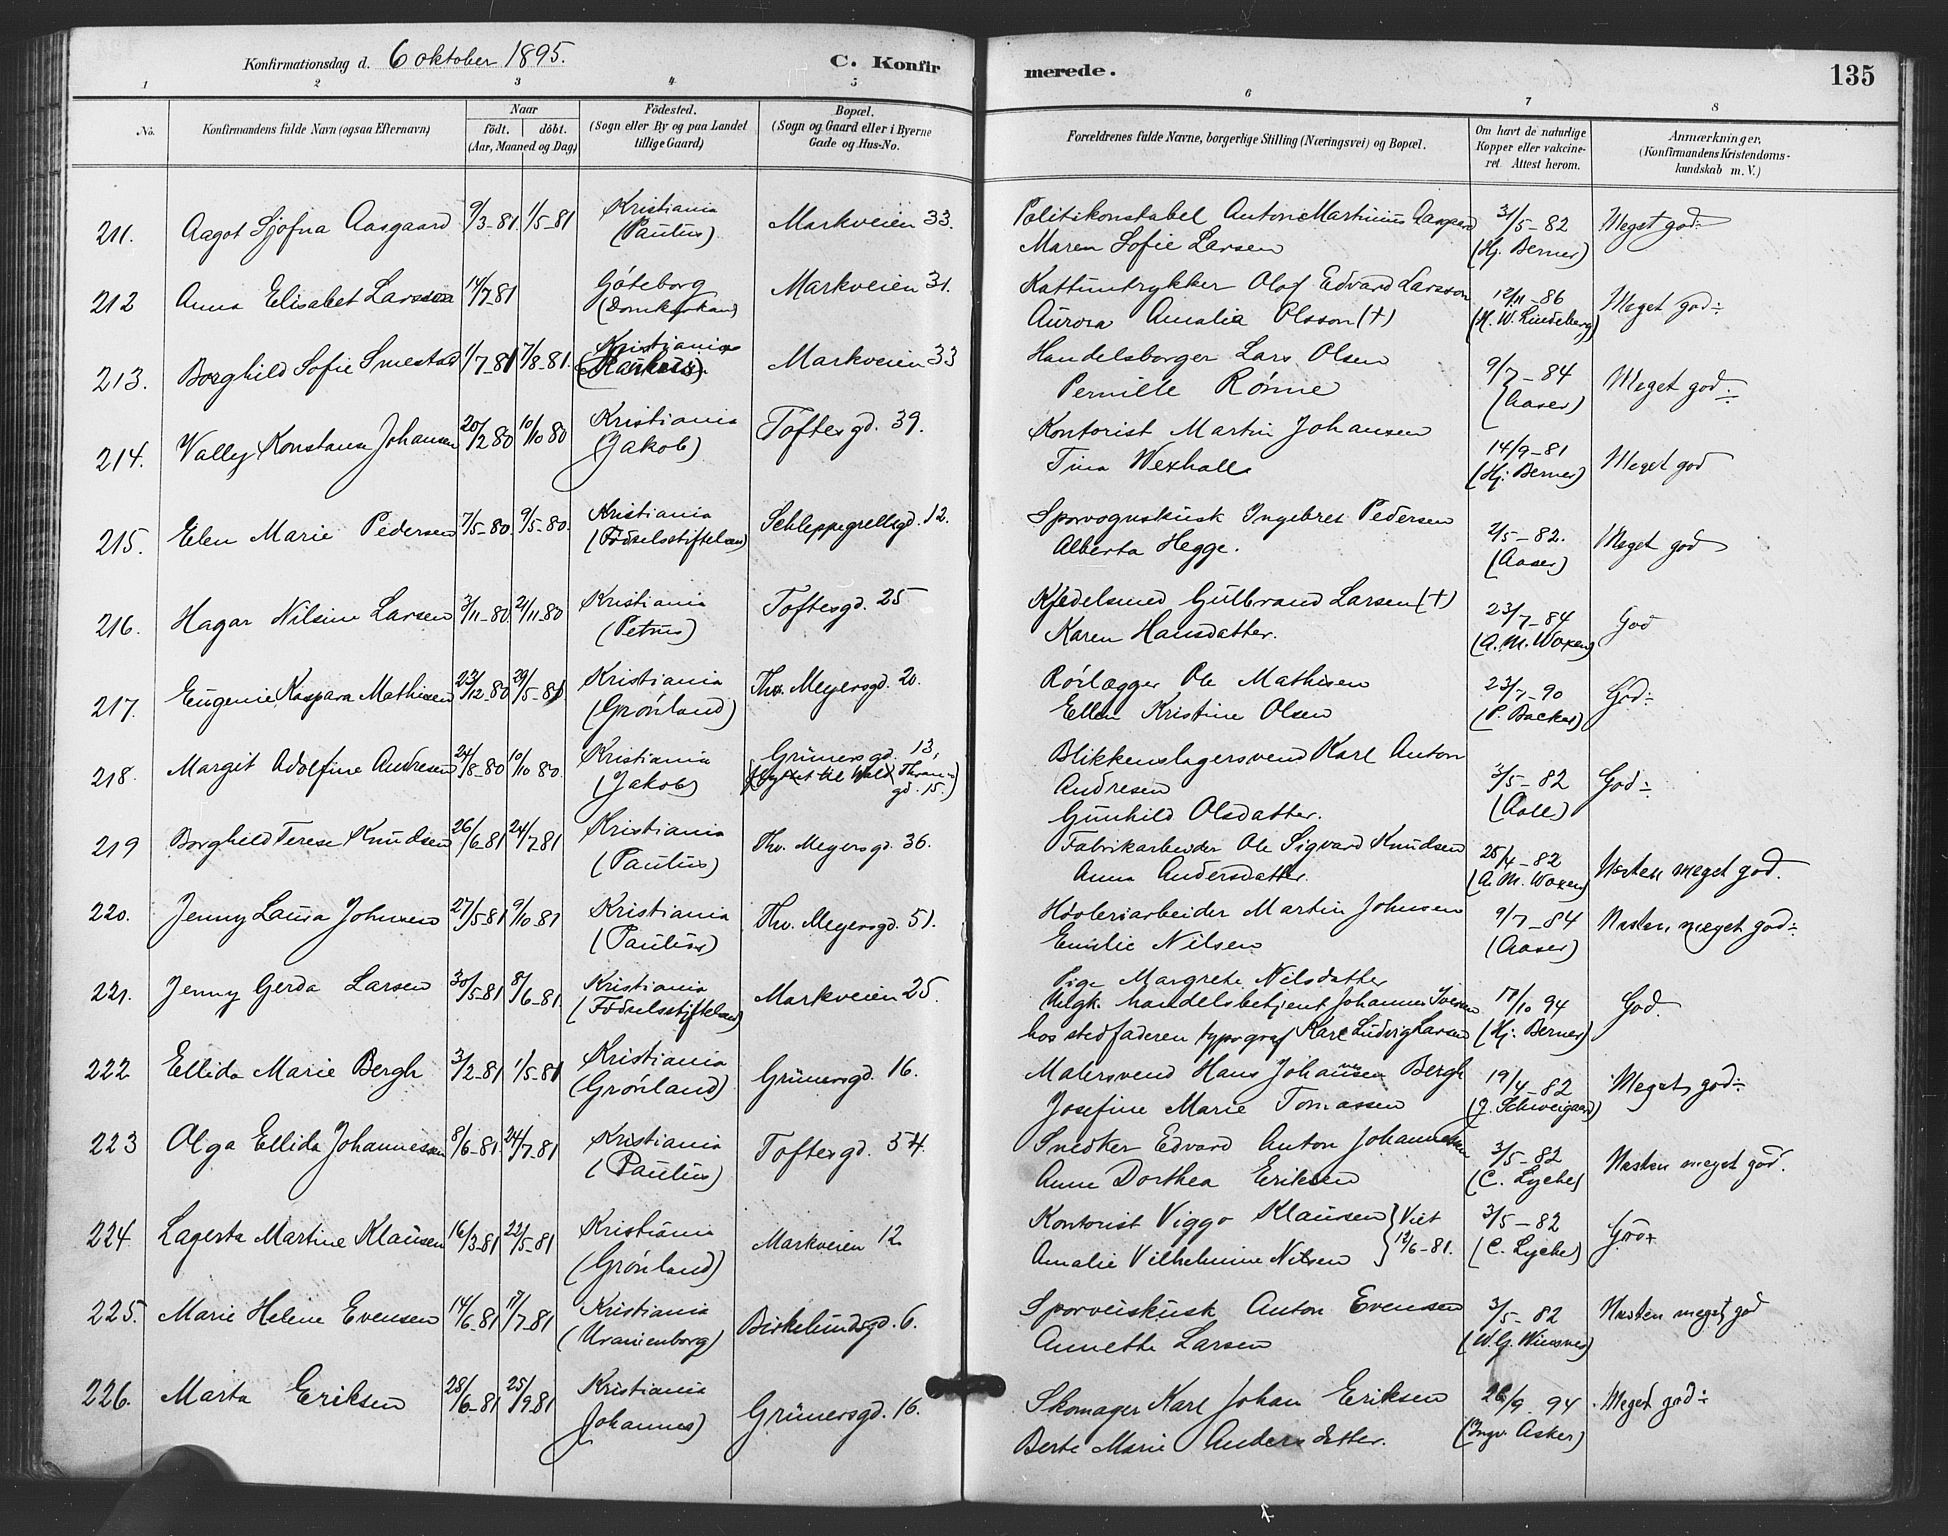 Konfirmationsdag d. 6 oktober 1895. C. Konfirmerede. 135
1 2 3 4 5 6 7 8
No. Konfirmandens fulde Navn (ogsaa Efternavn) Naar födt. döbt. (Aar, Maaned og Dag) Födested. (Sogn eller By og paa Landet tillige Gaard) Bopæl. (Sogn og Gaard eller i Byerne Gade og Hus-No. Forældrenes fulde Navne, borgerlige Stilling (Næringsvei) og Bopæl. Om havt de naturlige Kopper eller vakcineret Attest herom. Anmærkninger, (Konfirmandens Kristendomskundskab m. V.)
211. Aagot Sjöfna Aasgaard 9/3-81 1/5-81 Kristiania (Paulus) Markveien 33. Politikonstabel Anton Martinius Aasgaard 31/5-82 Meget god÷
Maren Sofie Larsen (Hj. Berner)
212 Anna Elisabet Larsson 14/7 81 Göteborg (Domkyrkan) Markveien 31. Kattuntrykker Olof Edvard Larsson 12/11-86 Meget god÷
Aurora Amalia Olsson (†) (K. W. Lindeberg)
213. Borghild Sofie Smestad 1/7-81 7/8-81. Kristiania (Markus). Markveien 33 Handelsborger Lars Olsen 9/7-84 Meget god÷
Pernille Rönne (Aaser)
214. Vally Konstanse Johansen 20/2 80 10/10 80 Kristiania (Jakob) Toftesgd. 39. Kontorist Martin Johansen 14/9-81 Meget god
Tina Wexhall (Hj. Berner)
215. Elen Marie Pedersen 7/5-80. 9/5-80. Kristiania (Födselsstiftelsen) Schleppegrellsgd. 12. Sporvognskusk Ingebret Pedersen 2/5-82. Meget god
Alberta Hegge. (Aaser)
216. Hagar Nilsine Larsen 3/11-80. 21/11-80 Kristiania (Petrus) Toftesgd. 25 Kjedelsmed Gulbrand Larsen (†) 23/7-84 God
Karen Hansdatter. (A. M. Woxen)
217. Eugenie Kaspara Mathisen 23/12-80 29/5-81 Kristiania (Grönland) Thv. Meyersgd. 20. Rörlægger Ole Mathisen 23/7-90 God÷
Ellen Kristine Olsen (P. Backer)
218. Margit Adolfine Andresen 24/8-80 10/10 80. Kristiania (Jakob) Grünersgd. 13, (flyttet til Wald. Thranesgd. 15.) Blikkenslagersvend Karl Anton
Andresen 3/5-82 God÷
Gunhild Olsdatter. (Aall)
219 Borghild Terese Knudsen 26/6-81 24/7 81 Kristiania (Paulus) Thv. Meyersgd. 36. Fabrikarbeider Ole Sigvard Knudsen 25/4-82 Næsten meget god.
Anna Andersdatter. (A. M. Woxen)
220. Jenny Laura Johnsen 27/5 81 9/10 81 Kristiania (Paulus) Thv. Meyersgd. 51. Hövleriarbeider Martin Johnsen 9/7-84 Næsten meget god÷
Emilie Nilsen (Aaser)
221. Jenny Gerda Larsen 30/5-81 8/6-81. Kristiania (Födselsstiftelsen) Markveien 25. Pige Margrete Nilsdatter
Ungk. handelsbetjent Johannes Iversen 17/10 94 God.
hos stedfaderen typograf Karl Ludvig Larsen (Hj. Berner)
222 Ellida Marie Bergh 3/2-81 1/5-81 Kristiania (Grönland) Grünersgd. 16. Malersvend Hans Johansen Bergh 19/4-82 Meget god÷
Josefine Marie Tomassen (J. Schweigaard)
223 Olga Ellida Johannessen 8/6-81. 24/7-81 Kristiania (Paulus) Toftesgd. 54. Snedker Edvard Anton Johannessen 3/5-82 Næsten meget god.
Anne Dorthea Eriksen (C. Lyche)
224 Lagerta Martine Klausen 16/3-81 22/5-81 Kristiania (Grönland) Markveien 12. Kontorist Viggo Klausen } Viet 3/5-82 God+
Amalie Vilhelmine Nilsen } 12/6-81. (C. Lyche)
225. Marie Helene Evensen 14/6-81 17/7-81 Kristiania (Uranienborg) Birkelundsgd. 6. Sporveiskusk Anton Evensen 3/5-82 Næsten meget god
Annette Larsen
226. Marta Eriksen 28/6-81 25/9 81 Kristiania Johannes) Grünersgd. 16. Skomager Karl Johan Eriksen 26/9. 94 Meget god÷
Berte Marie Andersdatter. (Ingv. Asker)